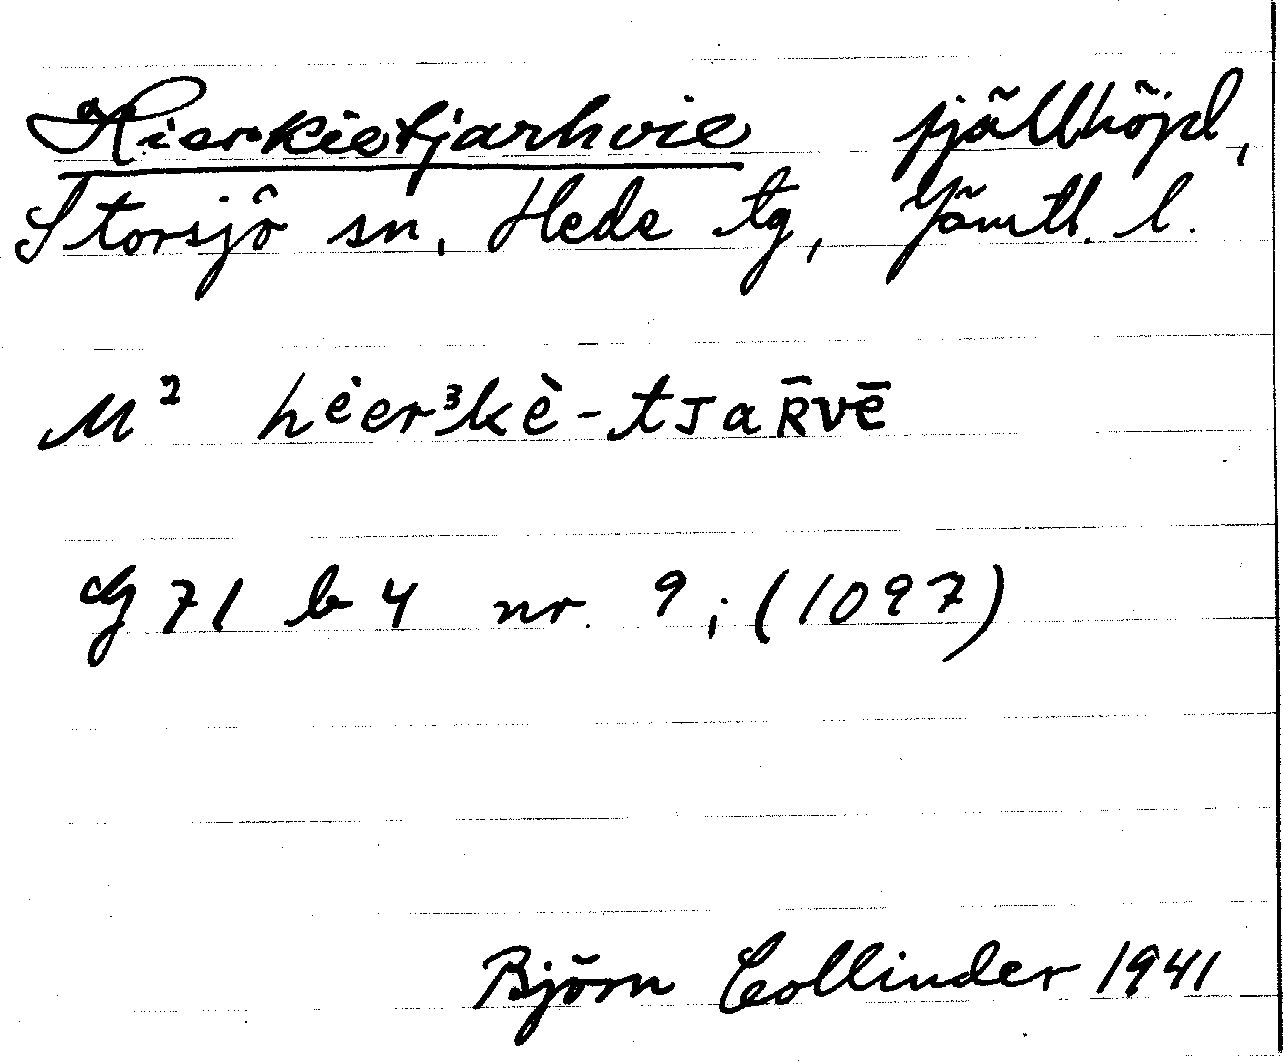 Hierkietjarhvie fjällhöjd,
Storsjö sn, Hede tg, Jämtl. l.
M² hèer³kè-tJaR̄vē
G 71 b 4 nr. 9; (1097)
Björn Collinder 1941